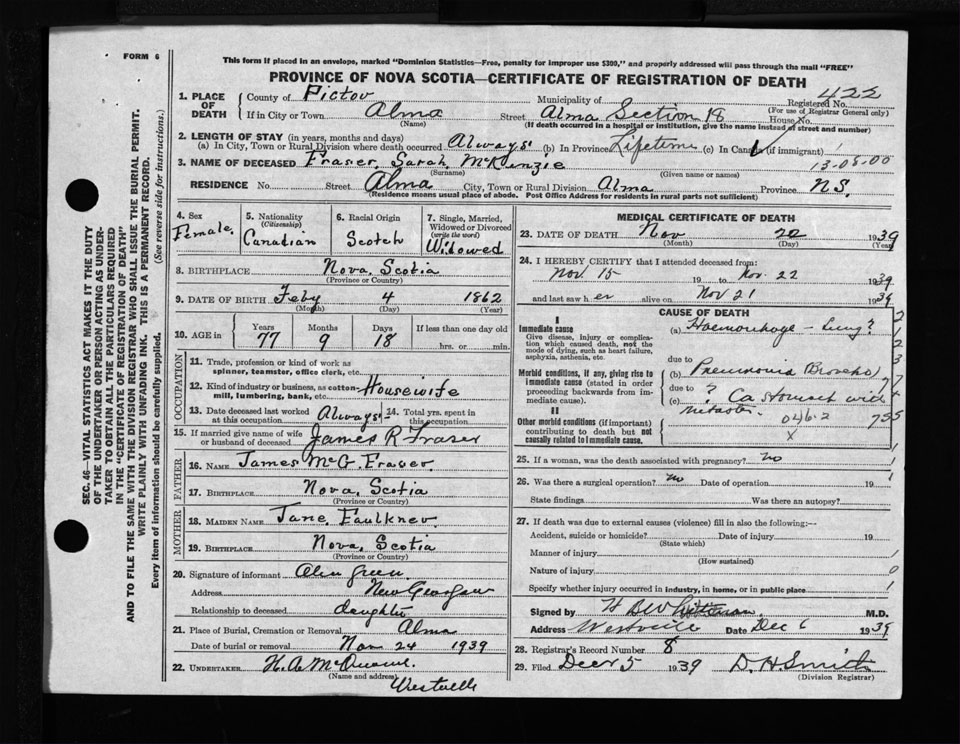 FORM 6
This form if placed in an envelope, marked "Dominion Statistics—Free, penalty for improper use $300," and properly addressed will pass through the mail "FREE"
PROVINCE OF NOVA SCOTIA—CERTIFICATE OF REGISTRATION OF DEATH
SEC. 46—VITAL STATISTICS ACT MAKES IT THE DUTY
OF THE UNDERTAKER OR PERSON ACTING AS UNDER-
TAKER TO OBTAIN ALL THE PARTICULARS REQUIRED
IN THE "CERTIFICATE OF REGISTRATION OF DEATH"
AND TO FILE THE SAME WITH THE DIVISION REGISTRAR WHO SHALL ISSUE THE BURIAL PERMIT.
WRITE PLAINLY WITH UNFADING INK. THIS IS A PERMANENT RECORD.
Every item of information should be carefully supplied. (See reverse side for instructions.)
1. PLACE OF DEATH County of Pictou Municipality of Registered No. 422
(For use of Registrar General only)
If in City or Town Alma Street Alma Section 18 House No.
(Name) (If death occurred in a hospital or institution, give the name instead of street and number)
2. LENGTH OF STAY (in years, months and days)
(a) In City, Town or Rural Division where death occurred Always (b) In Province Lifetime (c) In Canada (if immigrant)
3. NAME OF DECEASED Fraser, Sarah McKenzie 13-05-00
(Surname) (Given name or names)
RESIDENCE No. Street Alma City, Town or Rural Division Alma Province N.S.
(Residence means usual place of abode. Post Office Address for residents in rural parts not sufficient)
4. Sex Female
5. Nationality (Citizenship) Canadian
6. Racial Origin Scotch
7. Single, Married, Widowed or Divorced (write the word) Widowed
8. BIRTHPLACE Nova Scotia
(Province or Country)
9. DATE OF BIRTH Feby 4 1862
(Month) (Day) (Year)
10. AGE in Years 77 Months 9 Days 18 If less than one day old hrs. or min.
OCCUPATION
11. Trade, profession or kind of work as spinner, teamster, office clerk, etc.
12. Kind of industry or business, as cotton mill, lumbering, bank, etc. Housewife
13. Date deceased last worked at this occupation Always 14. Total yrs. spent in this occupation
15. If married give name of wife or husband of deceased James R Fraser
FATHER
16. NAME James McG. Fraser
17. BIRTHPLACE Nova Scotia
(Province or Country)
MOTHER
18. MAIDEN NAME Jane Faulkner
19. BIRTHPLACE Nova Scotia
(Province or Country)
20. Signature of informant Green
Address New
Relationship to deceased daughter
21. Place of Burial, Cremation or Removal Alma
Date of burial or removal Nov 24 1939
22. UNDERTAKER H. A.
(Name and address)
Westville
MEDICAL CERTIFICATE OF DEATH
23. DATE OF DEATH Nov 22 1939
(Month) (Day) (Year)
24. I HEREBY CERTIFY that I attended deceased from:
Nov 15 19 to Nov. 22 1939
and last saw her alive on Nov 21 1939
CAUSE OF DEATH
I
Immediate cause (a) Haemorrhage - Lung?
Give disease, injury or complication which caused death, not the mode of dying, such as heart failure, asphyxia, asthenia, etc.
due to
Morbid conditions, if any, giving rise to immediate cause (stated in order proceeding backwards from immediate cause). (b) Pneumonia
due to
(c) ? Ca stomach with
II
Other morbid conditions (if important) contributing to death but not causally related to immediate cause.
046-2
X
25. If a woman, was the death associated with pregnancy? no
26. Was there a surgical operation? no Date of operation 19
State findings Was there an autopsy?
27. If death was due to external causes (violence) fill in also the following:—
Accident, suicide or homicide? Date of injury 19
(State which)
Manner of injury
(How sustained)
Nature of injury
Specify whether injury occurred in industry, in home, or in public place
Signed by M.D.
Address Westville Date Dec 6 1939
28. Registrar's Record Number 8
29. Filed Decr 5 1939 D. H. Smith
(Division Registrar)